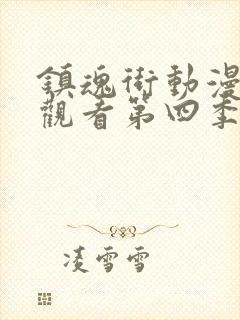 鎮魂街動漫
觀看第四季
凌雪雪